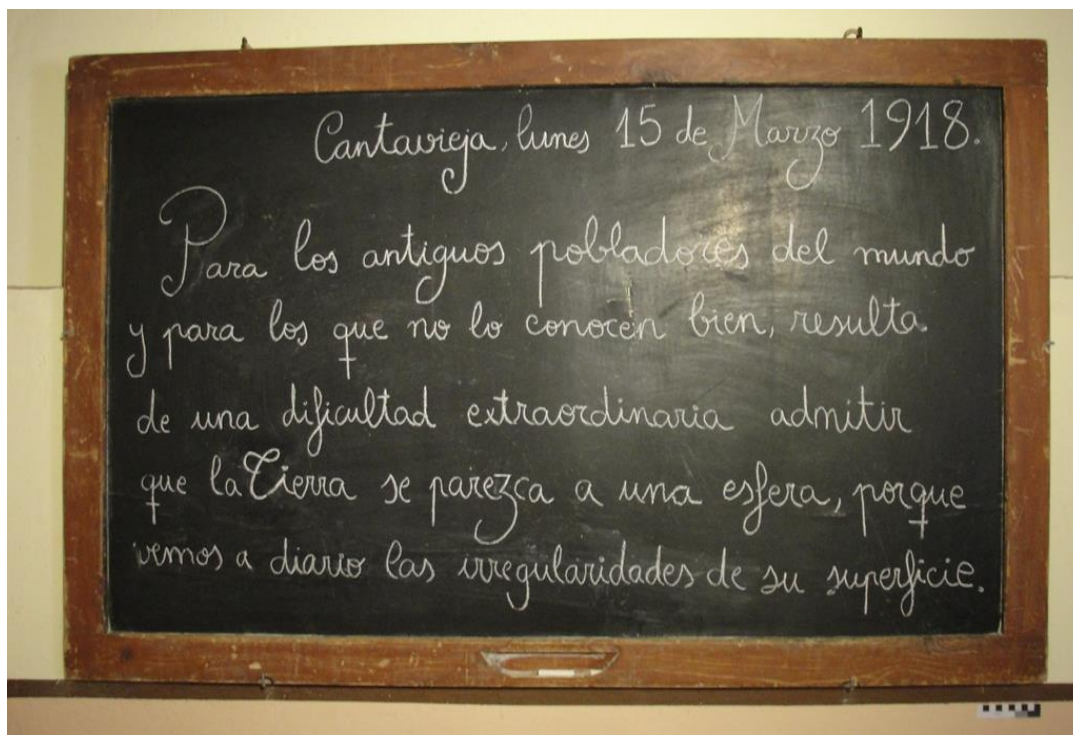 Cantavieja, lunes 15 de Marzo 1918.
Para los antiguos pobladores del mundo
y para los que no lo conocen bien, resulta
de una dificultad extraordinaria admitir
que la Tierra se parezca a una esfera, porque
vemos a diario las irregularidades de su superficie.